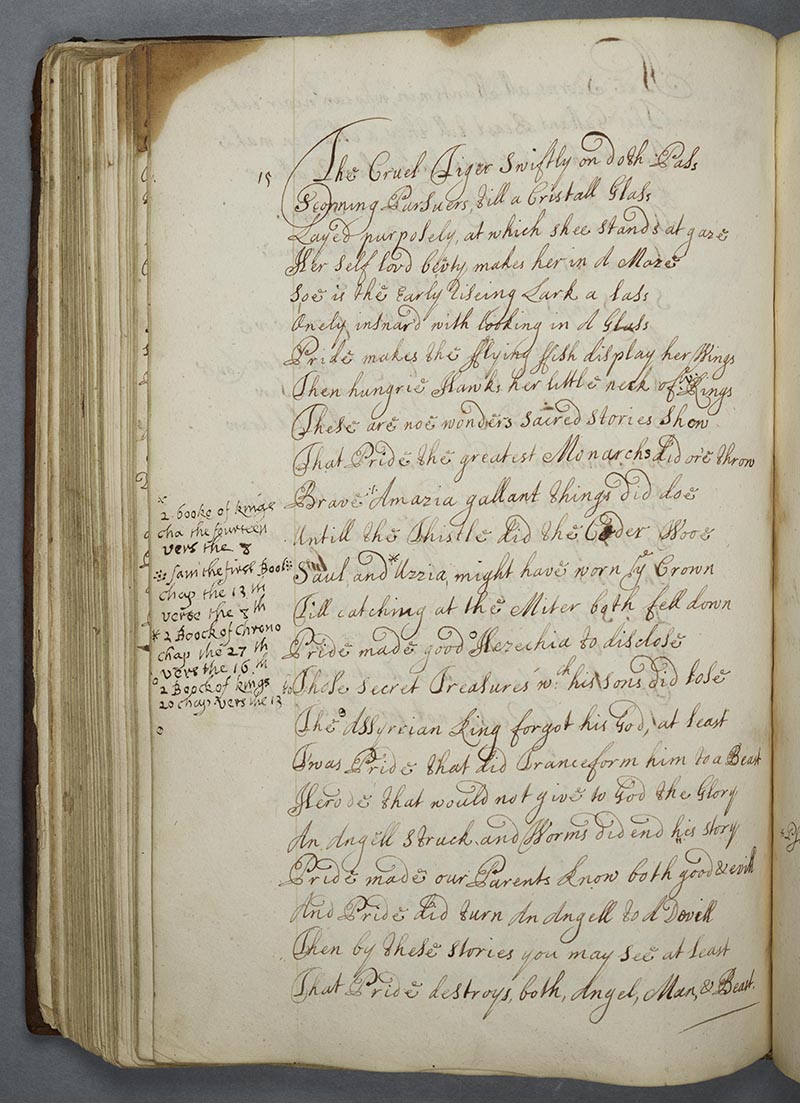 15
The Cruel Tiger Swiftly on doth Pass
Scorning Parsuers, till a Cristall Glass
Layed purposely, at which shee stands at gaze
Her self lovd bevty, makes her in A Maze
Soe is the Early Riseing Lark a lass
Onely insnard with looking in A Glass
Pride makes the fflying ffish display her Wings
Then hungrie Hawks her little neck of Rings
These are noe wonders Sacred Stories Shew
That Pride the greatest Monarchs did ore throw
Brave Amazia gallant things did doe
Untill the Thistle did the Ceder Wooe
Saul, and * Uzzia, might have worn ye Crown
Till catching at the Miter both fell down
Pride made good Hezechia to disclose
Those Secret Treasures wch his sons did lose
The Assyrcian King forgot his God, at least
Twas Pride that did Tranceform him to a Beast
Herode that would not give to God the Glory
An Angell Struck, and Worms did end his story
Pride made our Parents Know both good & evill
And Pride did turn An Angell to A Devill
Then by these Stories you may see at least
That Pride destroys, both, Angel, Man, & Beast.
*
2 booke of kings
cha the fourteen
vers the 8
Sam the first Book
chap the 13 th
verse the 8 th
* 2 Boock of Chrono
chap the 27 th
vers the 16 th
2 Boock of kings
20 chap vers the 13